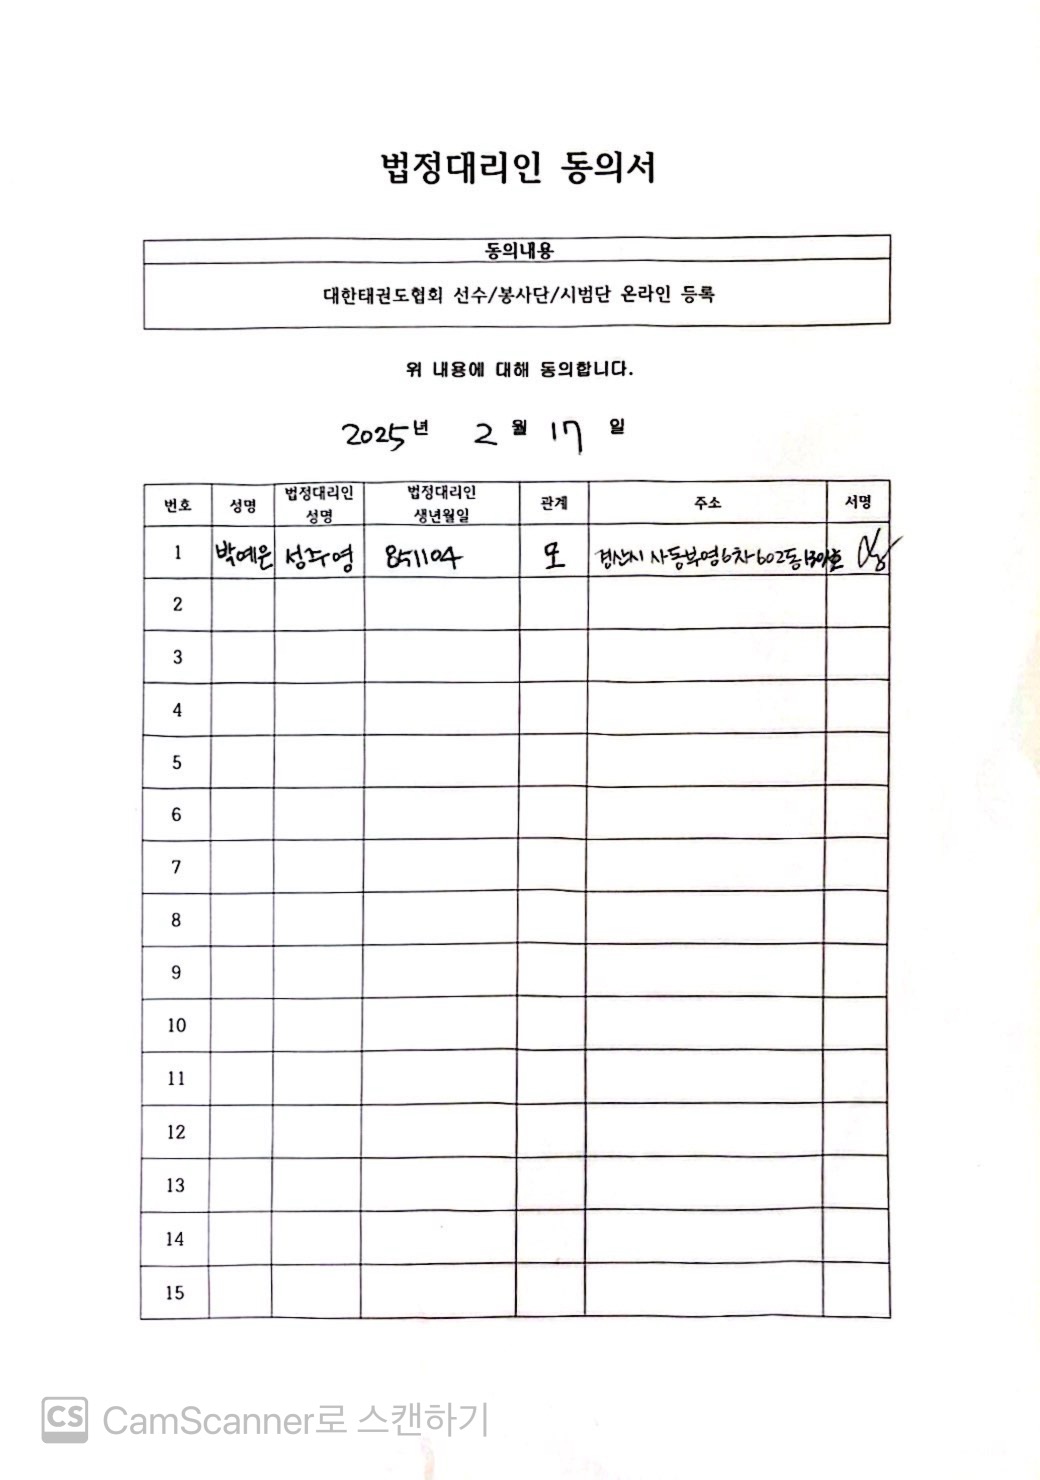 법정대리인 동의서
동의내용
대한태권도협회 선수/봉사단/시범단 온라인 등록
위 내용에 대해 동의합니다.
2025년 2월 17일
번호 성명 법정대리인 성명 법정대리인 생년월일 관계 주소 서명
1 박예은 성주영 851104 모 경산시 사동부영6차 602동 1301호
2
3
4
5
6
7
8
9
10
11
12
13
14
15
CS CamScanner로 스캔하기